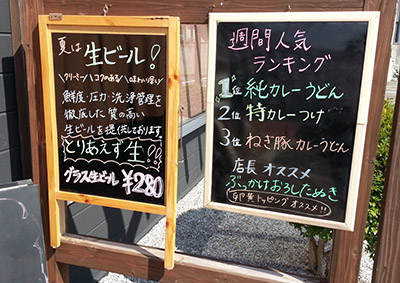 夏は生ビール!
\クリーミー/\コクのある/\味わい深い/
鮮度・圧力・洗浄管理を
徹底した質の高い
生ビールを提供しております
とりあえず生!!
グラス生ビール ¥280
週間人気
ランキング
1位 純カレーうどん
2位 特カレーつけ
3位 ねぎ豚カレーうどん
店長オススメ
ぶっかけおろしたぬき
卵黄トッピングオススメ!!